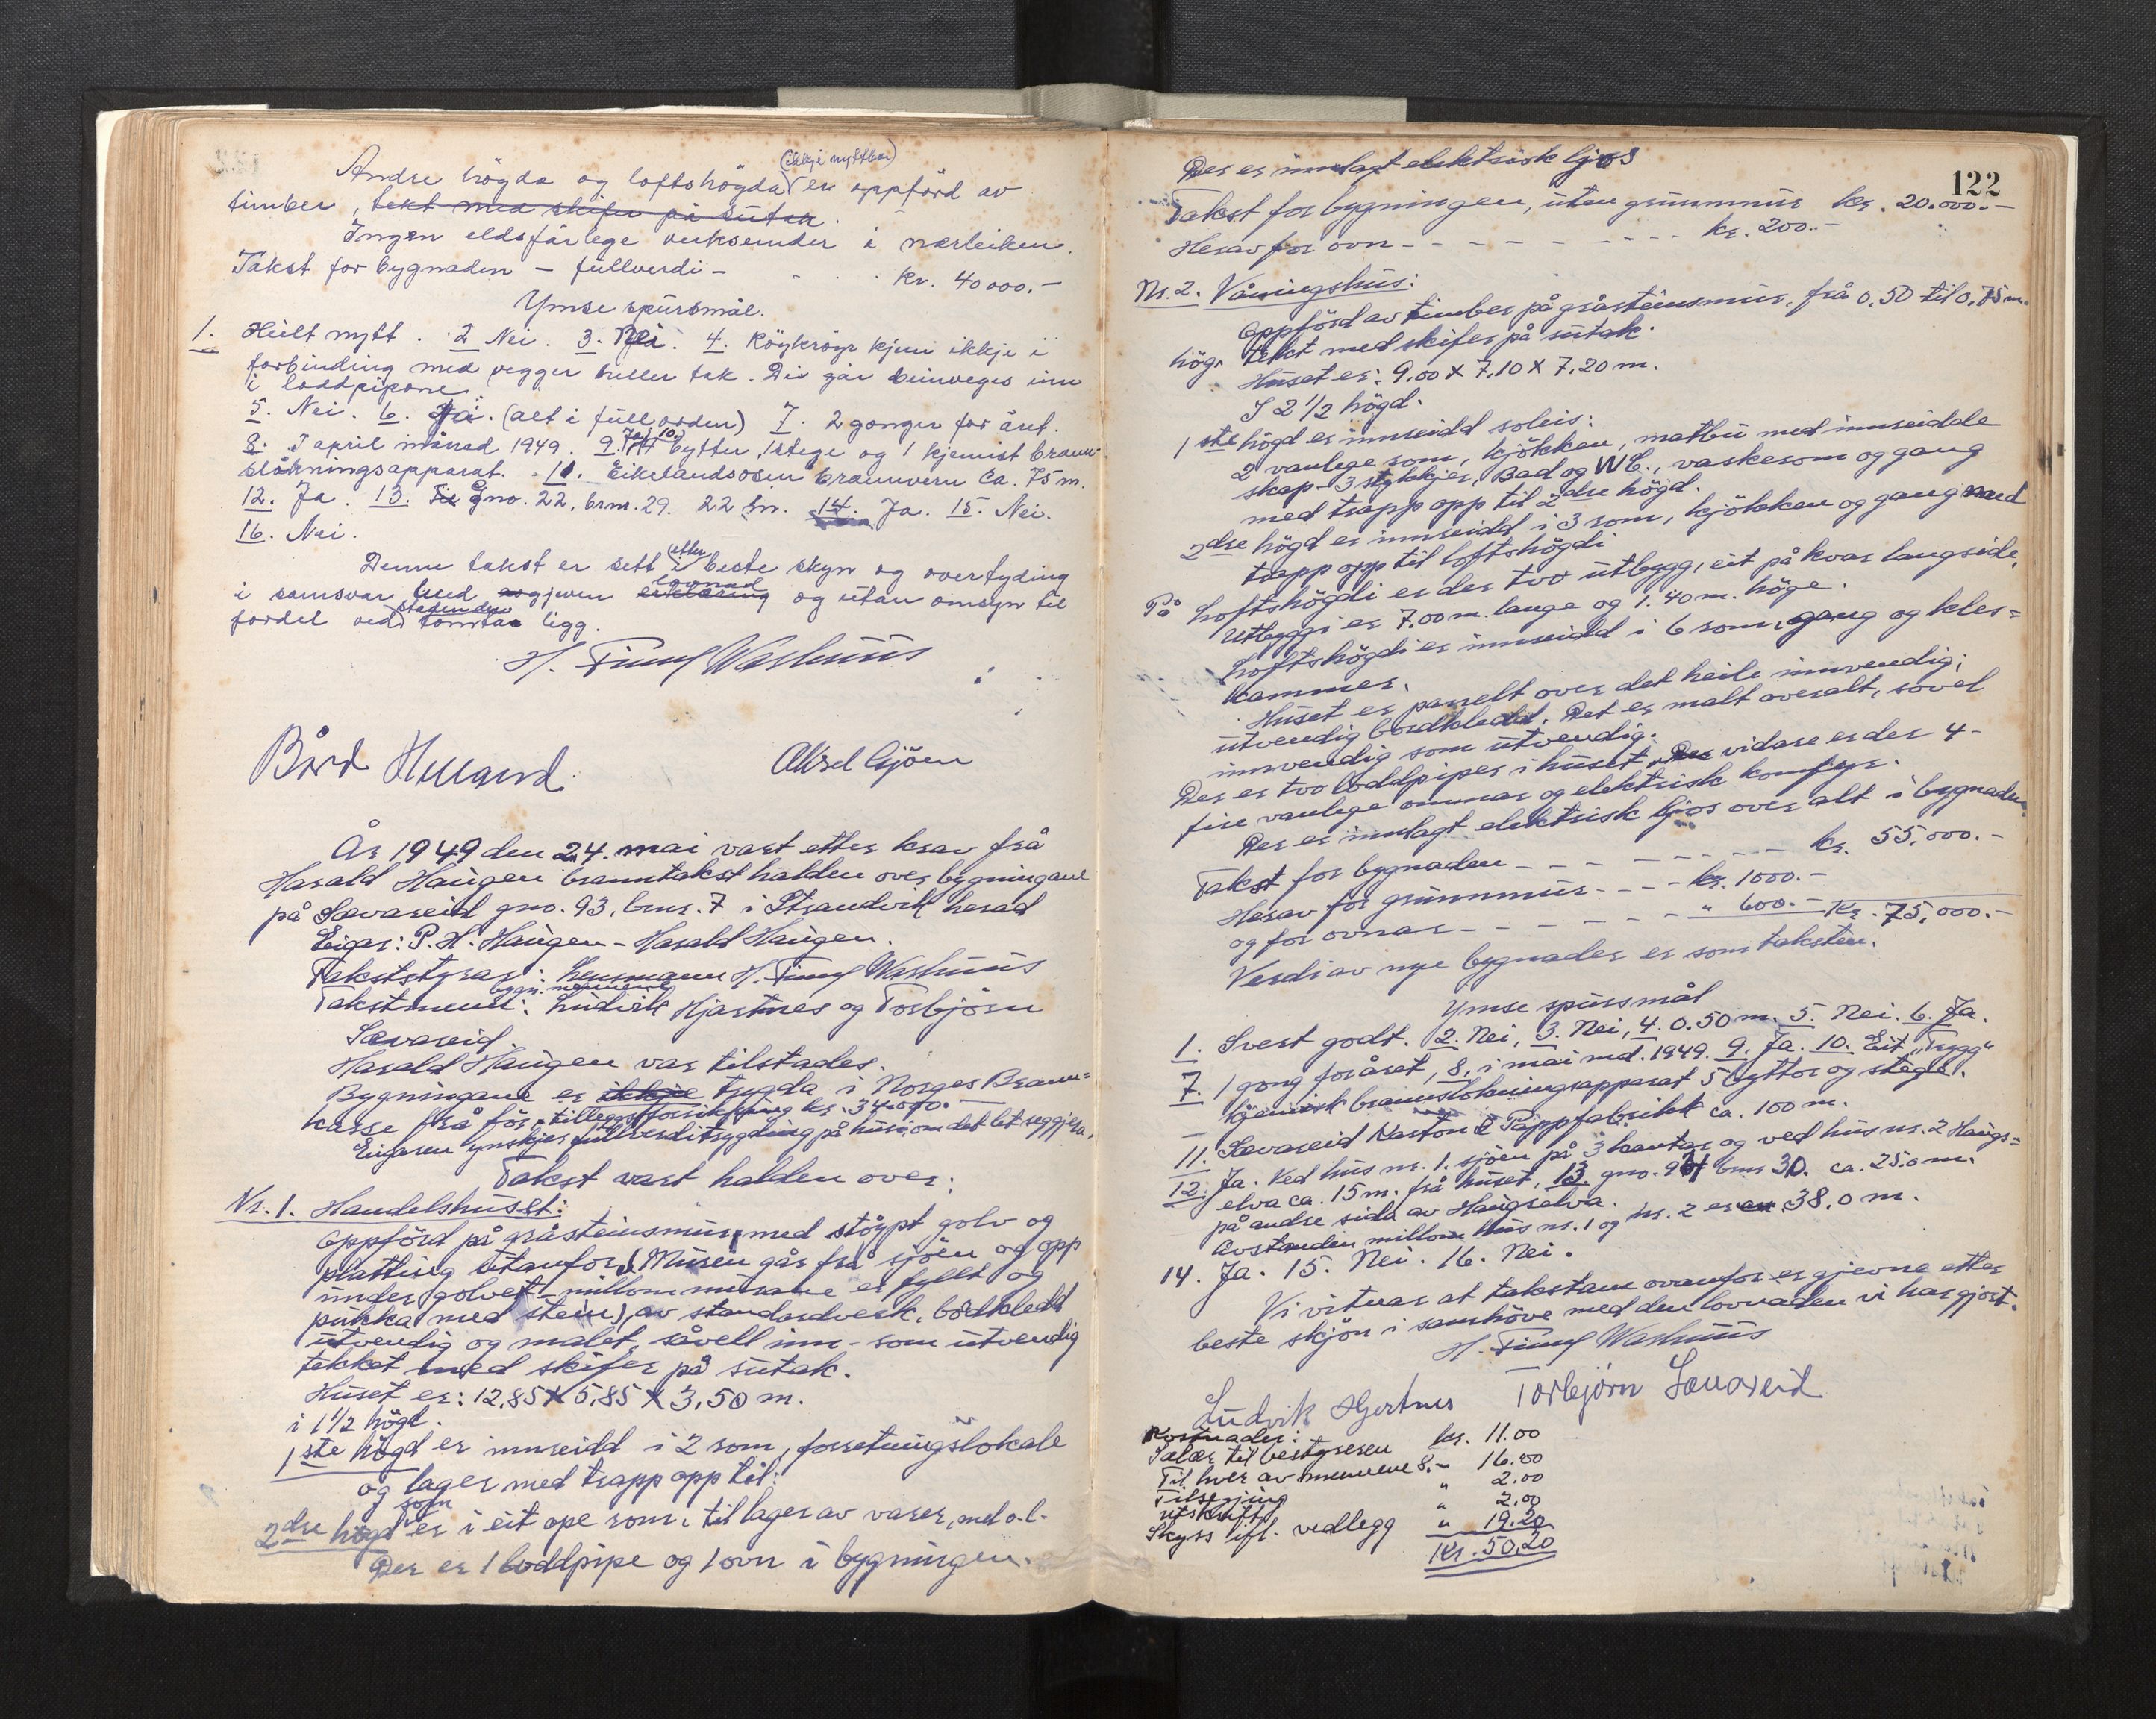 Andre högda og loftshögda (ikkje nyttbar) er oppförd av
timber, tekt med skifer på sutak.
Ingen eldsfarlege verksemder i nærleiken.
Takst for bygnaden – fullverdi – kr. 40 000.–
Ymse spursmål.
1. Heilt nytt. 2 Nei. 3. Nei. 4. Röykröyr kjem ikkje i
forbindning med vegger eller tak. Dei går beinveges inn
i loddpipone.
5. Nei. 6. Ja. (alt i full orden) 7. 2 gonger for året.
8. I april månad 1949. 9. Ja, 10. bytter, 1 stege og 1 kjemist brann-
slökningsapparat. 11. Eikelandsosen brannvern ca. 75 m.
12. Ja. 13. gno. 22, brnr. 29. 22 m. 14. Ja. 15. Nei.
16. Nei.
Denne takst er sett etter beste skyn og overtyding
i samsvar med gjeven erklæring lovnad og utan omsyn til
fordel ved staden der tomta ligg.
H. Finny Warhuus
Bård Helland. Aksel Gjöen
År 1949 den 24. mai vart etter krav frå
Harald Haugen branntakst halden over bygningane
på Sævareid gno. 93, bnr. 7 i Strandvik herad
Eigar: P. H. Haugen – Harald Haugen.
Takststyrar: Lensmann H. Finny Warhuus
Takstmenn: bygn. mennene Ludvik Hjartnes og Torbjörn
Sævareid.
Harald Haugen var tilstades.
Bygningane er ikkje trygda i Norges Brann=
kasse frå för. tilleggsforsikring kr. 34.000.–
Eigaren ynskjer fullverditrygding på husi om det let seg gjera,
Takst vart halden over:
Nr. 1. Handelshuset:
Oppförd på gråsteinsmur, med stöypt golv og
platting utanfor, (Muren går frå sjöen og opp
under golvet – millom murane er fyllt og
pukka med stein), av standardverk, bordkledt
utvendig og malet, såvell inn- som utvendig
tekket med skifer på sutak.
Huset er: 12,85 X 5,85 X 3,50 m.
i 1 1/2 högd.
1ste högd er innreidd i 2 rom, forretningslokale
og lager med trapp opp til:
2dre högd som er i eit ope rom, til lager av varer, mel o.l.
Der er 1 loddpipe og 1 ovn i bygningen.
122
Der er innlagt elektrisk ljos
Takst for bygningen, uten grunnmur kr. 20.000.–
Herav for ovn – – – – – – – – – kr. 200.–
Nr. 2. Våningshus:
Oppförd av timber på gråsteinsmur, frå 0,50 til 0,75 m.
hög, tekt med skifer på sutak.
Huset er: 9,00 X 7,10 X 7,20 m.
I 2 1/2 högd.
1ste högd er innreidd soleis:
2 vanlege rom, kjökken, matbu med innreidde
skap – 3 stykkjer, Bad og W C., vaskerom og gang
med trapp opp til 2dre högd.
2dre högd er innreidd i 3 rom, kjökken og gang med
trapp opp til loftshögdi
På Loftshögdi er der tvo utbygg, eit på kvar langside,
Utbyggi er 7.00 m. lange og 1.40 m. höge.
Loftshögdi er innreidd i 6 rom, gang og kles=
kammer.
Huset er panelt over det heile innvendig;
utvendig bordkledd. Det er malt overalt, såvel
innvendig som utvendig.
Der er tvo loddpiper i huset, Der vidare er der 4 –
fire vanlege omnar og elektrisk komfyr.
Der er innlagt elektrisk ljos over alt i bygnaden.
Takst for bygnaden – – – – – – – – kr. 55,000.–
Herav for grunnmur – – – – kr. 1000.–
og for ovnar – – – – – – – " 600.– Kr. 75,000.–
Verdi av nye bygnader er som taksten.
Ymse spursmål
1. Svert godt. 2. Nei, 3. Nei, 4. 0.50 m. 5. Nei. 6. Ja.
7. 1 gong for året, 8. i mai md. 1949. 9. Ja. 10. Eit "Trygg"
kjemisk brannslökningsapparat 5 byttor og stege.
11. Sævareid Karton & Pappfabrikk ca. 100 m.
12. Ja. Ved hus nr. 1. sjöen på 3 kantar og ved hus nr. 2 Haugs=
elva ca. 15 m. frå huset, 13. gno. 94 bnr 30. ca. 25.0 m.
på andre sida av Haugselva.
Avstanden millom hus nr. 1 og nr. 2 er 38,0 m.
14. Ja. 15. Nei. 16. Nei.
Vi vitnar at takstane ovanfor er gjevne etter
beste skjön i samhöve med den lovnaden vi har gjort.
H. Finny Warhuus
Ludvik Hjertnes Torbjörn Sævareid
Kostnader:
Salær til bestyreren kr. 11.00
Til hver av mennene 8.– 16.00
Tilsegjing " 2.00
Utskrift " 2.00
Skyss ifl. vedlegg " 19.20
Kr. 50,20